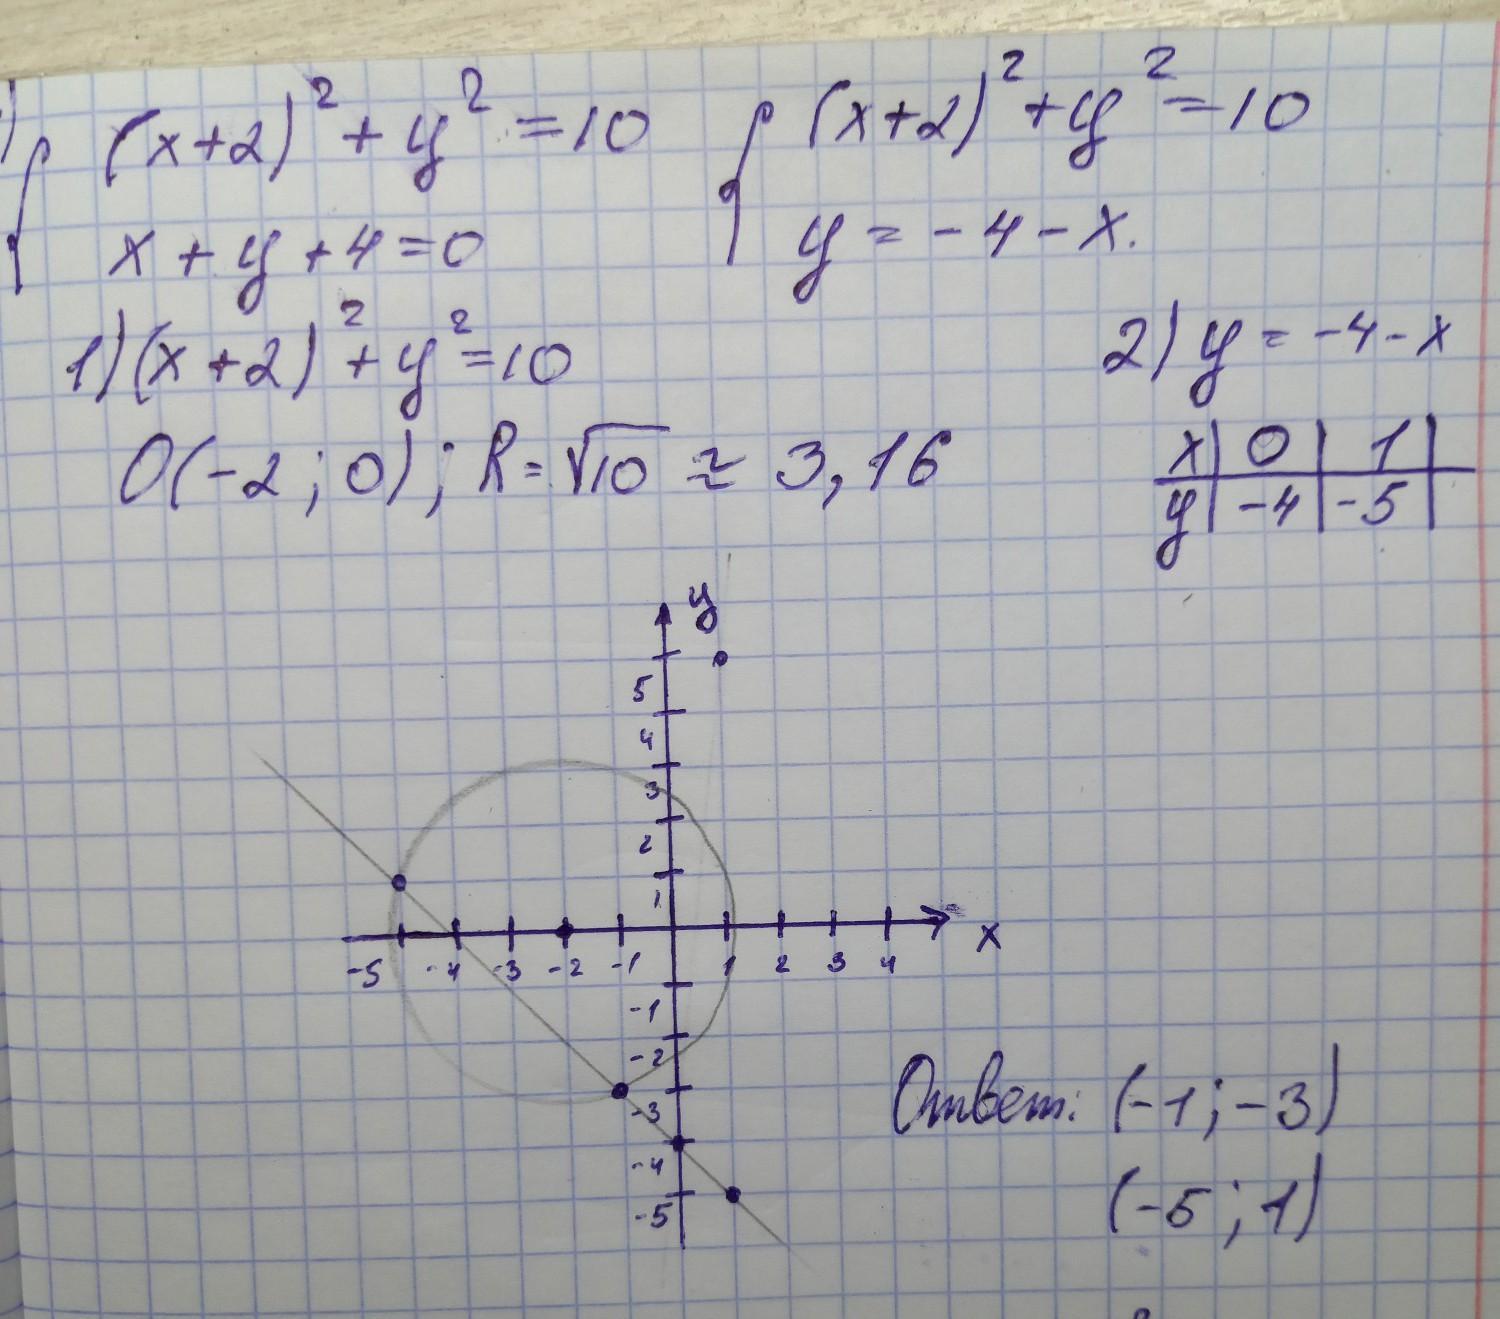 { (x+2)² + y² = 10
x + y + 4 = 0
{ (x+2)² + y² = 10
y = -4 - x.
1) (x+2)² + y² = 10
O(-2; 0); R = √10 ≈ 3,16
2) y = -4 - x
x | 0 | 1 |
y | -4 | -5 |
y
5
4
3
2
1
-5 -4 -3 -2 -1 1 2 3 4 x
-1
-2
-3
-4
-5
Ответ: (-1; -3)
(-5; 1)